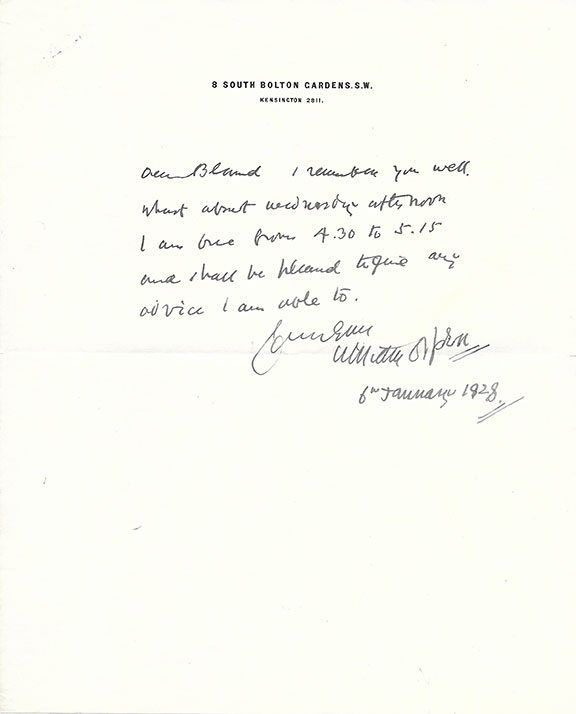 8 SOUTH BOLTON GARDENS. S.W.
KENSINGTON 2811.
Dear Bland I remember you well.
What about Wednesday afternoon
I am free from 4.30 to 5.15
and shall be pleased to give any
advice I am able to.
Yours Ever
William Orpen
6th January 1928.